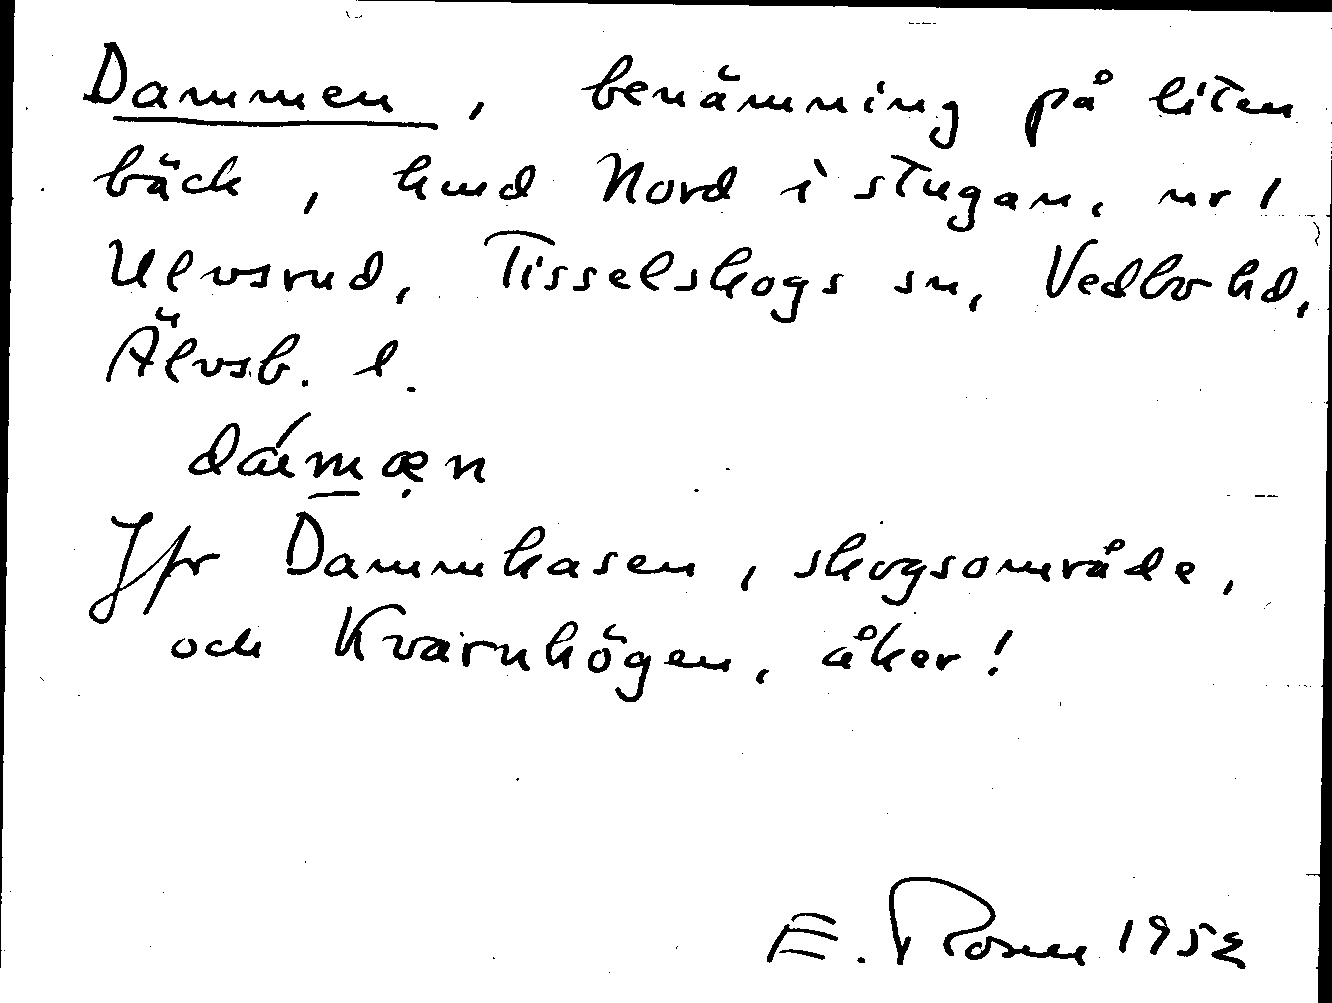 Dammen, benämning på liten
bäck, hmd Nord i stugan, nr 1
Ulvsrud, Tisselskogs sn, Vedbo hd,
Älvsb. l.
Jfr Dammkasen, skogsområde,
och Kvarnhögen, åker!
E. Rosen 1952